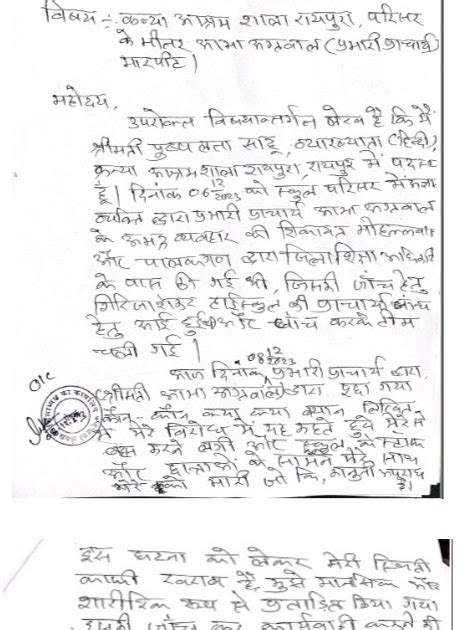 विषय :- कन्या आश्रम शाला रायपुरा, परिसर
के भीतर आभा अग्रवाल (प्रभारी प्राचार्य)
मारपीट।
महोदय,
उपरोक्त विषयान्तर्गत लेख है कि मैं
श्रीमती पुष्पलता साहू, व्याख्याता (हिन्दी),
कन्या आश्रम शाला रायपुरा, रायपुर में पदस्थ
हूँ। दिनांक 06/12/2023 को स्कूल परिसर में
व्यक्ति द्वारा प्रभारी प्राचार्य आभा अग्रवाल
के अभद्र व्यवहार की शिकायत मोहल्लेवासी
और पालकगण द्वारा जिला शिक्षा अधिकारी
के पास की गई थी, जिसकी जाँच हेतु
गिरिजाशंकर हाईस्कूल की प्राचार्या जांच
हेतु आई हुई थी और जाँच करके टीम
चली गई।
आज दिनांक 08/12/2023 प्रभारी प्राचार्य द्वारा
श्रीमती आभा अग्रवाल द्वारा पूछा गया
कौन-कौन क्या क्या बयान लिखित
में मेरे विरोध में यह कहते हुये मेरे से
बहस करने लगी और स्कूल के स्टाफ
और छात्राओं के सामने मेरे साथ
मारी जो कि, कानूनी अपराध
है।
OIC
इस घटना को लेकर मेरी स्थिति
काफी खराब है, मुझे मानसिक और
शारीरिक रूप से प्रताड़ित किया गया
इसकी जाँच कर कार्यवाही करने की